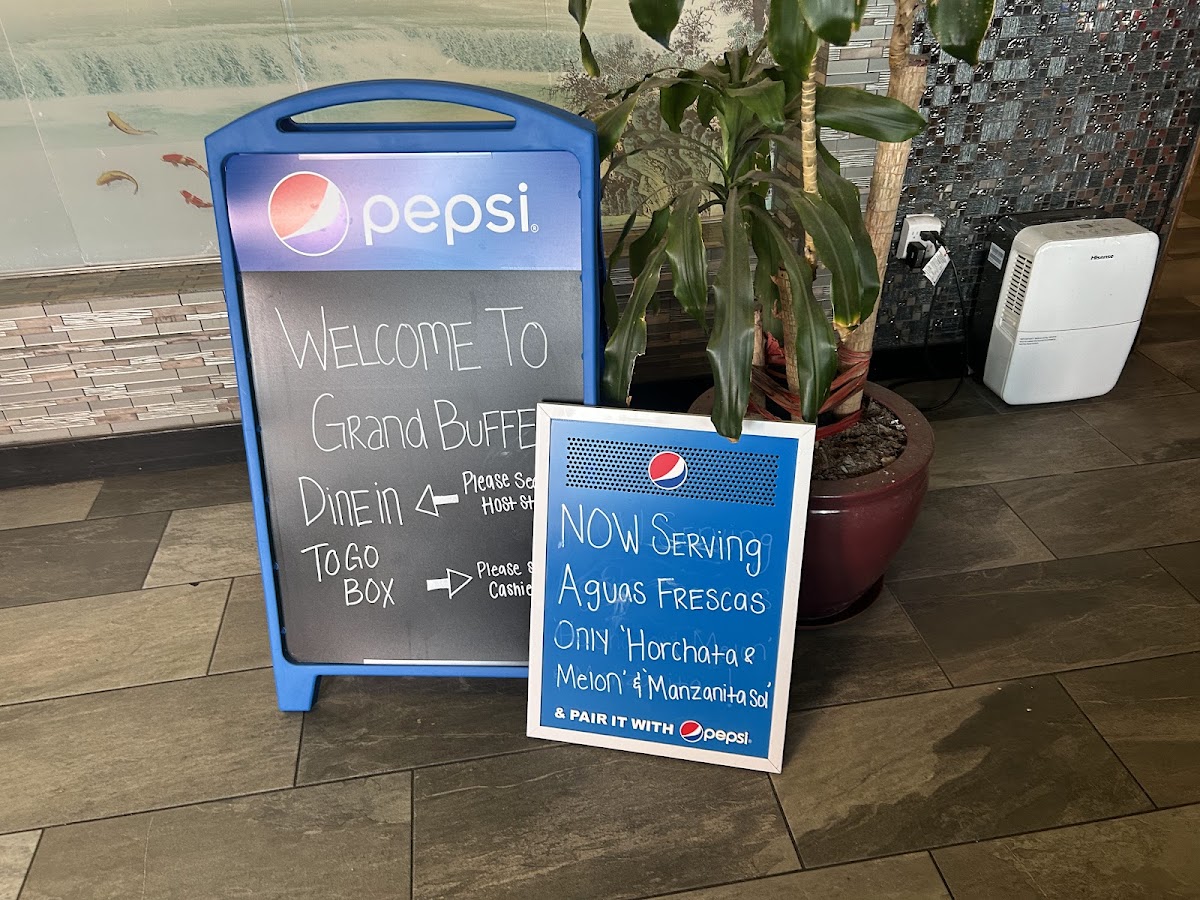 pepsi
WELCOME TO
Grand BUFFE
DINE IN
Please See
Host St
TOGO
BOX
Please s
Cashie
NOW Serving
Aguas FRESCAS
Only 'Horchata &
Melon' & 'Manzanita Sol'
& PAIR IT WITH pepsi
Hisense